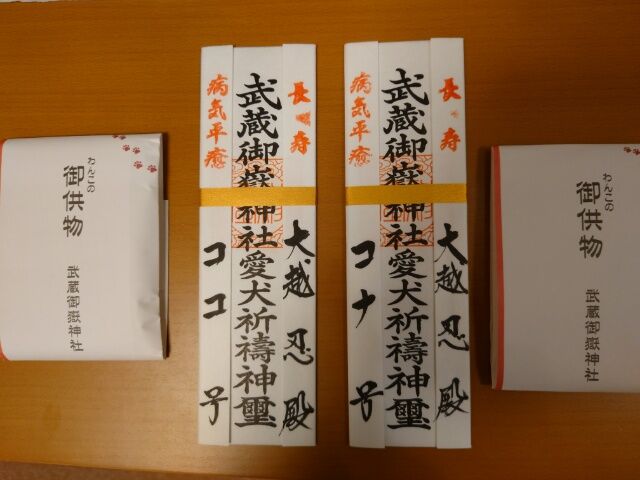 わんこの
御供物
武蔵御嶽神社
長寿
大越忍殿
武蔵御嶽神社愛犬祈禱神璽
病気平癒
ココ号
長寿
大越忍殿
武蔵御嶽神社愛犬祈禱神璽
病気平癒
コナ号
わんこの
御供物
武蔵御嶽神社